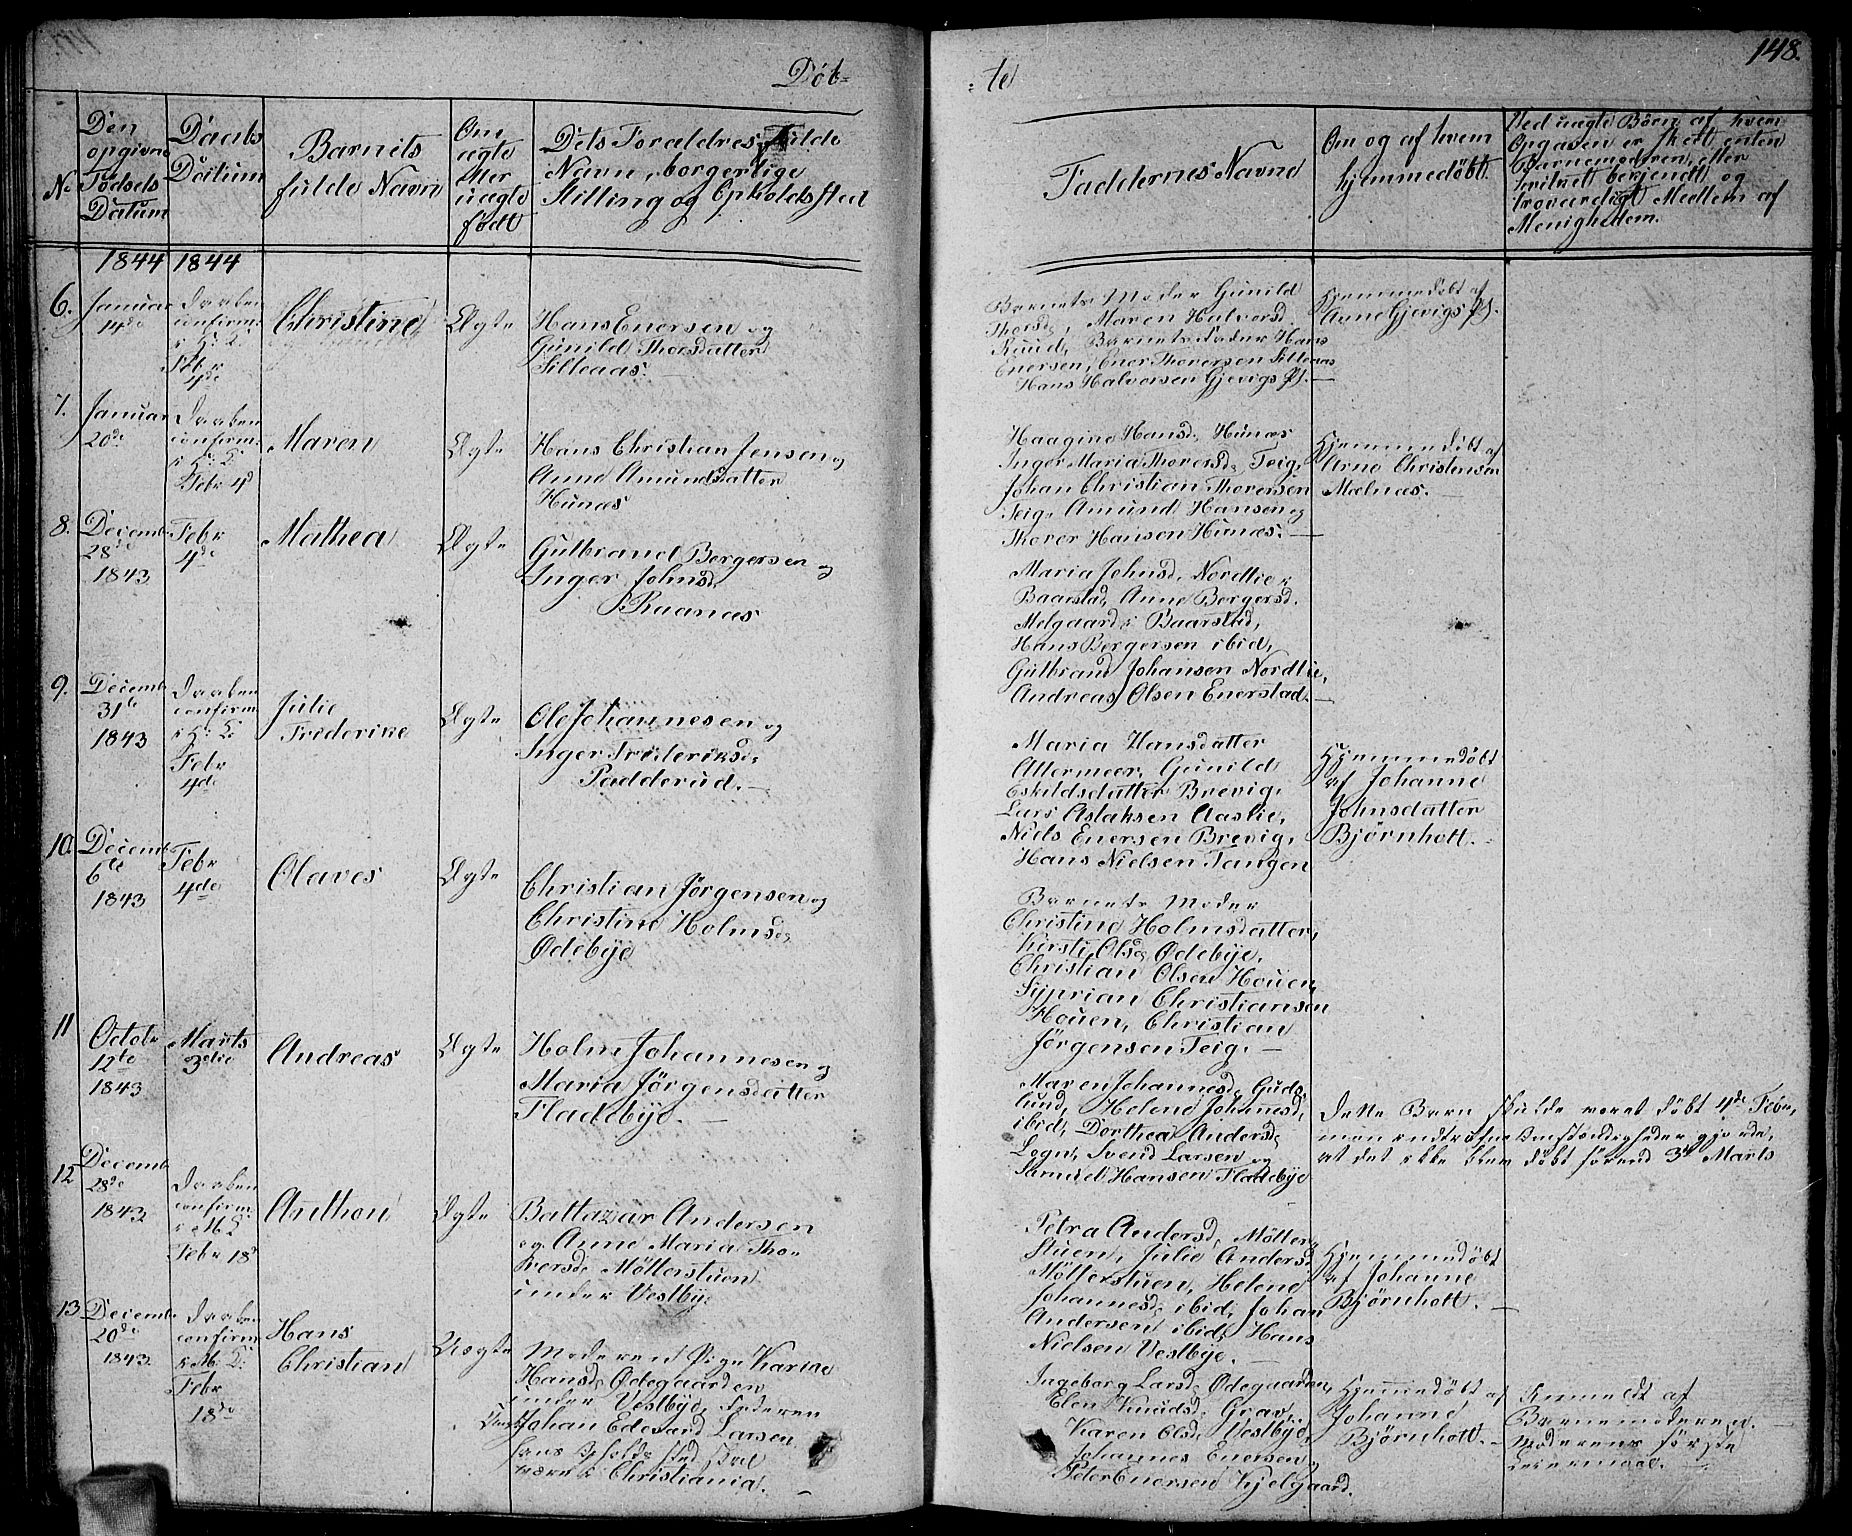 148.
Døb-
:te
No
Den
opgivne
Fødsels
Datum
Daabs
Datum
Barnets
fulde Navn
Om
ægte
eller
uægte
født
Dets Forældres Fulde
Navn, borgerlige
Stilling og Opholdssted
Faddernes Navne
Om og af hvem
hjemmedøbt
Ved uægte Børn af hvem
Opgaven er skeet, enten
Barnemoderen, eller
hvilket bekjendt og
troværdigt Medlem af
Menigheden.
1844
1844
6.
Januar
14de
Daaben
confirm.
Febr
4de
Christine
Ægte
Hans Enersen og
Gunild Thorsdatter
Silleaas.
Barnets Moder Gunild
Thorsd, Maren Halvorsd.
Ruud, Barnets Fader Hans
Enersen, Ener Thoresen Silleaas
Hans Halvorsen Gjevigs Pl. —
Hjemmedøbt af
Arne Gjevigs Pl.
7.
Januar
20de
Daaben
confirm.
Febr 4d
Maren
Ægte
Hans Christian Jensen og
Anne Amundsdatter
Hunæs
Haagine Hansd, Hunæs
Inger Maria Thoresd, Teig,
Johan Christian Thoresen
Teig, Amund Hansen og
Thorer Hansen Hunæs. —
Hjemmedøbt af
Arne Christensen
Mælnæs. —
8.
Decemb.
28de
1843
Febr
4de
Mathea
Ægte
Gulbrand Bergersen og
Inger Johnsd,
Raanæs
Maria Johnsd, Nordlie
Baarstad, Anne Bergersd.
Melgaard Baarstad,
Hans Bergersen ibid,
Gulbrand Johansen Nordlie,
Andreas Olsen Enerstad. —
9.
Decemb
31te
1843
Daaben
confirm.
Febr
4de
Julie
Friderike
Ægte
Ole Johannesen og
Inger Frideriksd,
Padderud. —
Maria Hansdatter
Attermeer, Gunild
Eskildsdatter Brevig,
Lars Aslaksen Aaslie,
Niels Enersen Brevig,
Hans Nielsen Tangen
Hjemmedøbt
af Johanne
Johnsdatter
Bjørnholt.
10.
Decemb
6te
1843
Febr
4de
Olaves
Ægte
Christian Jørgensen og
Christine Holmsd,
Ødebye
Barnets Moder
Christine Holmsdatter,
Kirsti Olsd, Ødebye,
Christian Olsen Houen,
Syprian Christiansen
Houen, Christian
Jørgensen Teig. —
11
Octobr
12te
1843
Marts
3die
Andreas
Ægte
Holm Johannesen og
Maria Jørgensdatter
Fladebye. —
Maren Johannesd, Guds-
lund, Helene Johannesd,
ibid, Dorthea Andersd,
Logn, Svend Larsen og
Samuel Hansen Fladebye
Dette Barn skulde været døbt 4de Febr,
men indtrufne Omstændigheder gjorde,
at det ikke blev døbt førend 3die Marts
12
Decemb.
28de
1843
Daaben
confirm.
Febr 18d
Anthon
Ægte
Baltazar Andersen
og Anne Maria Tho-
resd, Møllerstuen
under Vestbye
Petra Andersd, Møller-
stuen, Julie Andersd
Møllerstuen, Helene
Johannesd, ibid, Johan
Andersen ibid, Hans
Nielsen Vestbye. —
Hjemmedøbt
af Johanne
Bjørnholt. —
13
Decemb.
20de
1843
Daaben
confirm.
Febr
18de
Hans
Christian
Uægte
Moderen Pige Karine
Hansd, Ødegaarden
under Vestbye, Faderen
Johan Edevard Larsen
hans Opholdssted skal
være i Christiania. —
Ingeborg Larsd, Ødegaarden,
Elen Knudsd, Grav,
Karen Olsd, Vestbye,
Johannes Enersen,
Peter Enersen Kjelgaard.
Hjemmedøbt af
Johanne
Bjørnholt. —
Anmeldt af
Barnemoderen.
Moderens første
Leiermaal. —